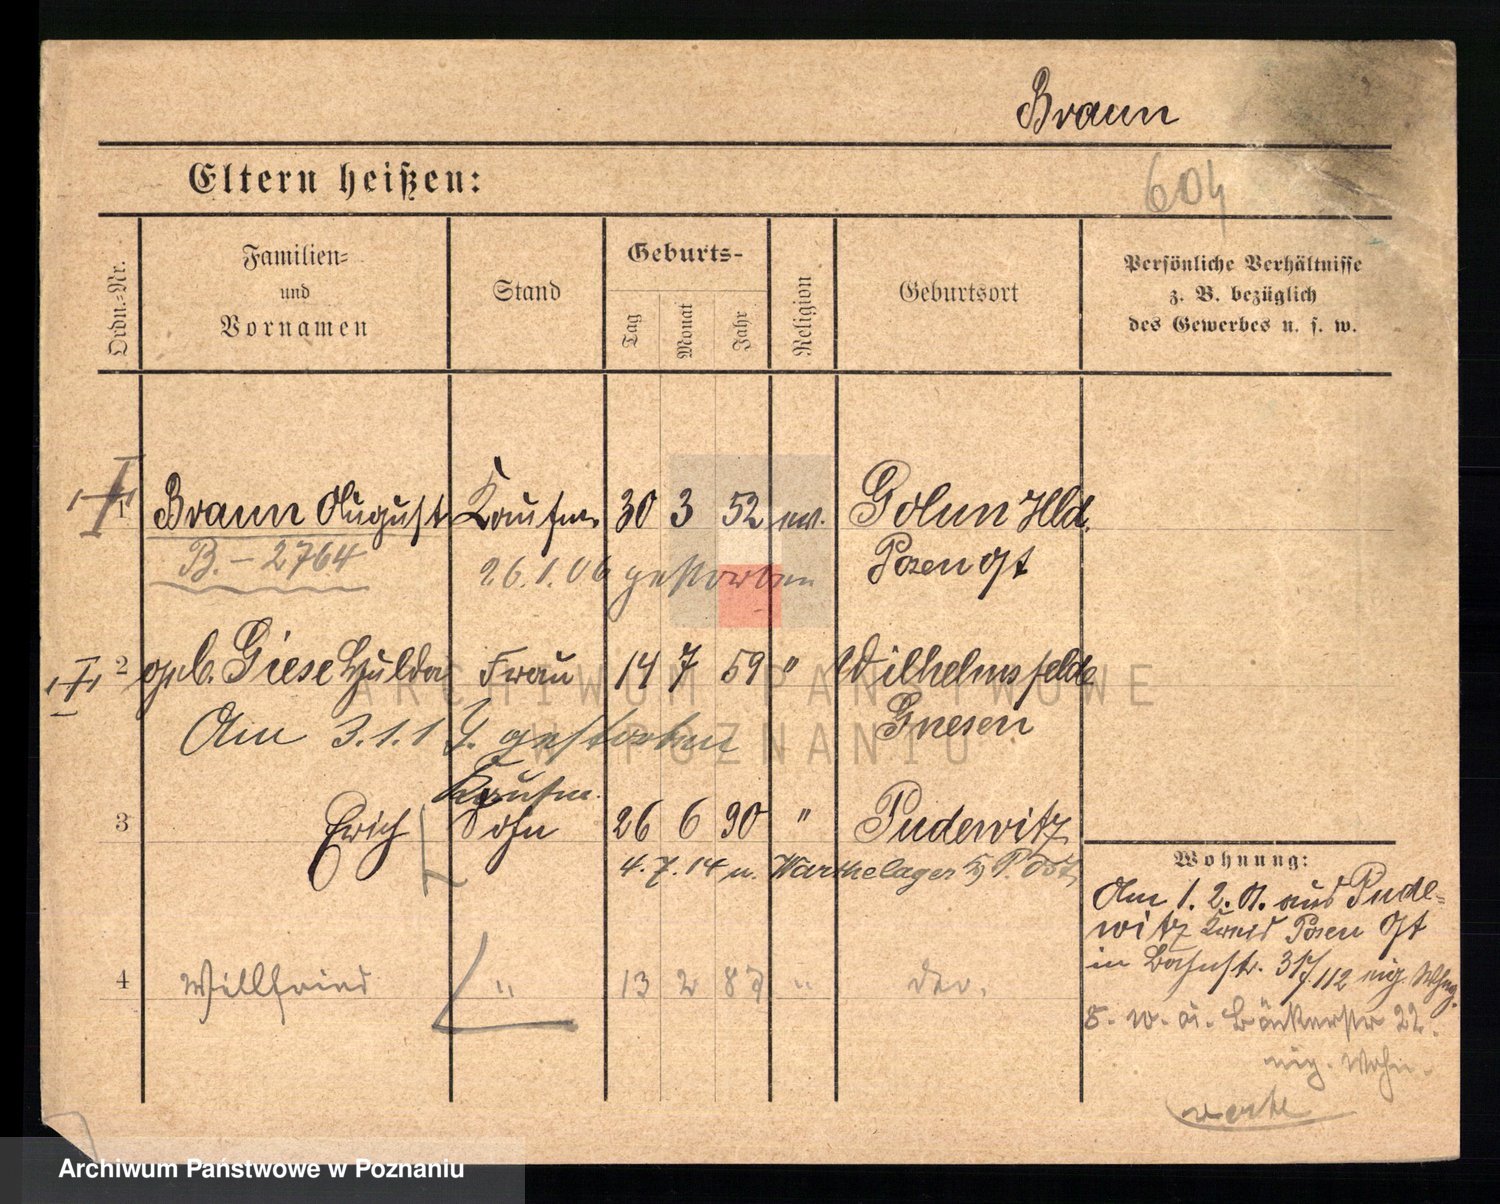 Braun
604
Eltern heißen:
Ordn.-Nr.
Familien-
und
Vornamen
Stand
Geburts-
Tag
Monat
Jahr
Religion
Geburtsort
Persönliche Verhältnisse
z. B. bezüglich
des Gewerbes u. s. w.
1 Braun August Kaufm. 30 3 52 ev. Golun Hld.
B. - 2764
26.1.06 gestorben
Posen Ost
2 geb. Giese Hulda Frau 14 7 59 " Wilhelmsfelde
Gnesen
Am 3.1.1 gestorben
Kaufm.
3 Erich Sohn 26 6 90 " Pudewitz
4.7.14 n. Warthelager P. Ost
4 Willfried " 13 2 87 " do.
Wohnung:
Am 1. 2. 01. aus Pude-
witz Kreis Posen Ost
in Bahnstr. 31/112 eig. Whng.
8. Bäckerstr 22.
eig. Wohn.
ARCHIWUM PAŃSTWOWE
W POZNANIU
Archiwum Państwowe w Poznaniu